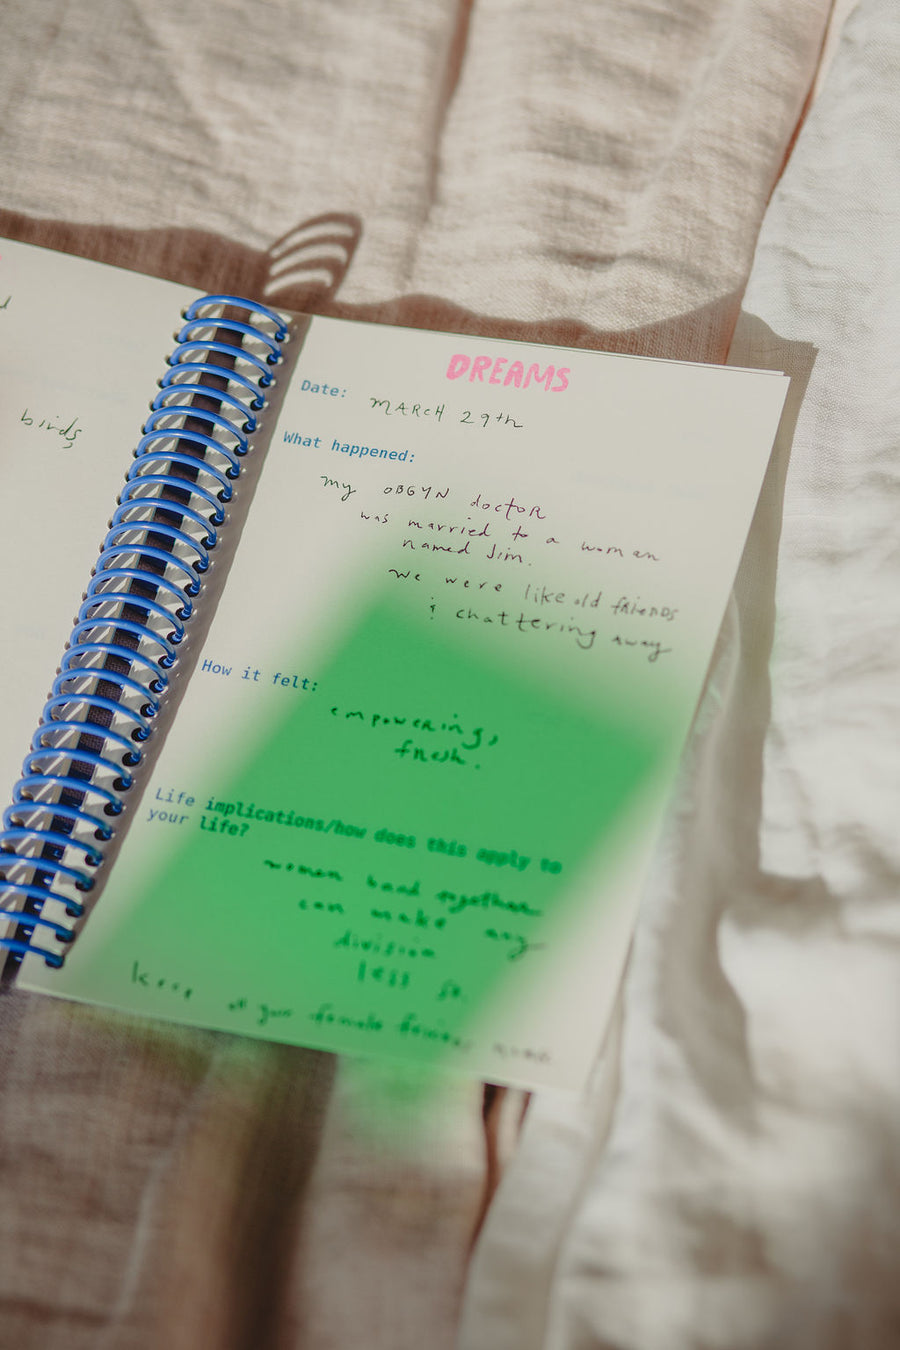 birds
DREAMS
Date: MARCH 29th
What happened:
my OBGYN doctor
was married to a woman
named Jim.
we were like old friends
& chattering away
How it felt:
empowering,
fresh.
Life implications/how does this apply to
your life?
women band together
can make any
division
less so.
keep at your female